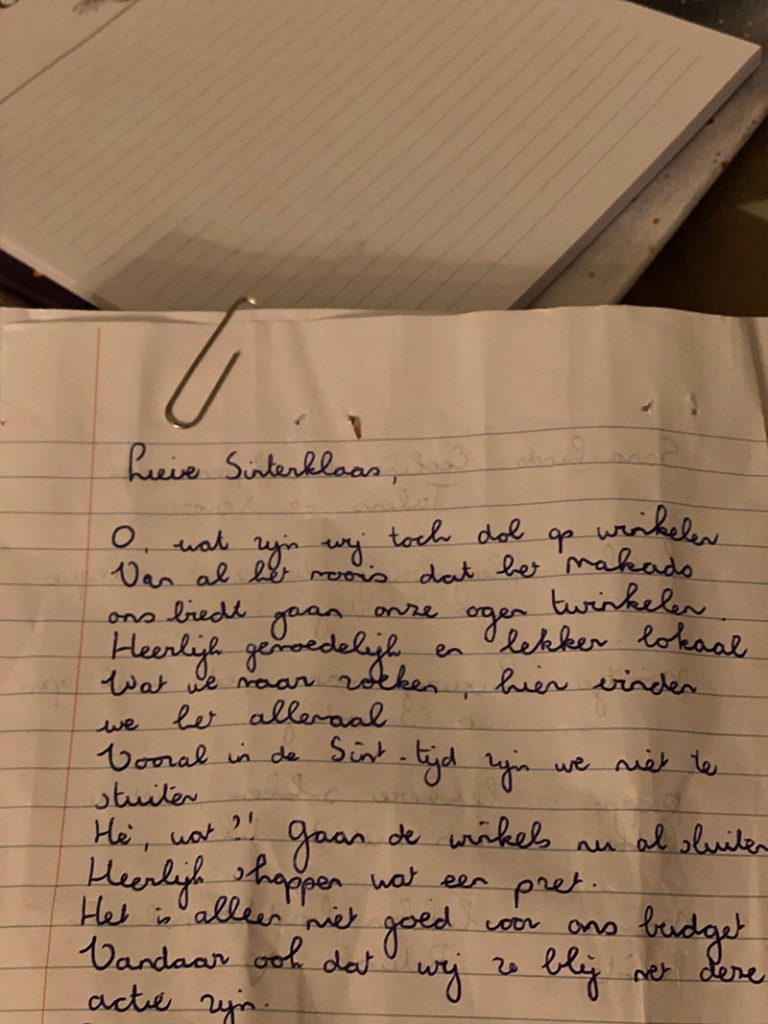 Lieve Sinterklaas,
O, wat zijn wij toch dol op winkelen
Van al het moois dat het Makado
ons biedt gaan onze ogen twinkelen.
Heerlijk gemoedelijk en lekker lokaal
Wat we naar zoeken, hier vinden
we het allemaal
Vooral in de Sint-tijd zijn we niet te
stuiten
Hè, wat?! Gaan de winkels nu al sluiten
Heerlijk shoppen wat een pret.
Het is alleen niet goed voor ons budget
Vandaar ook dat wij zo blij met deze
actie zijn.